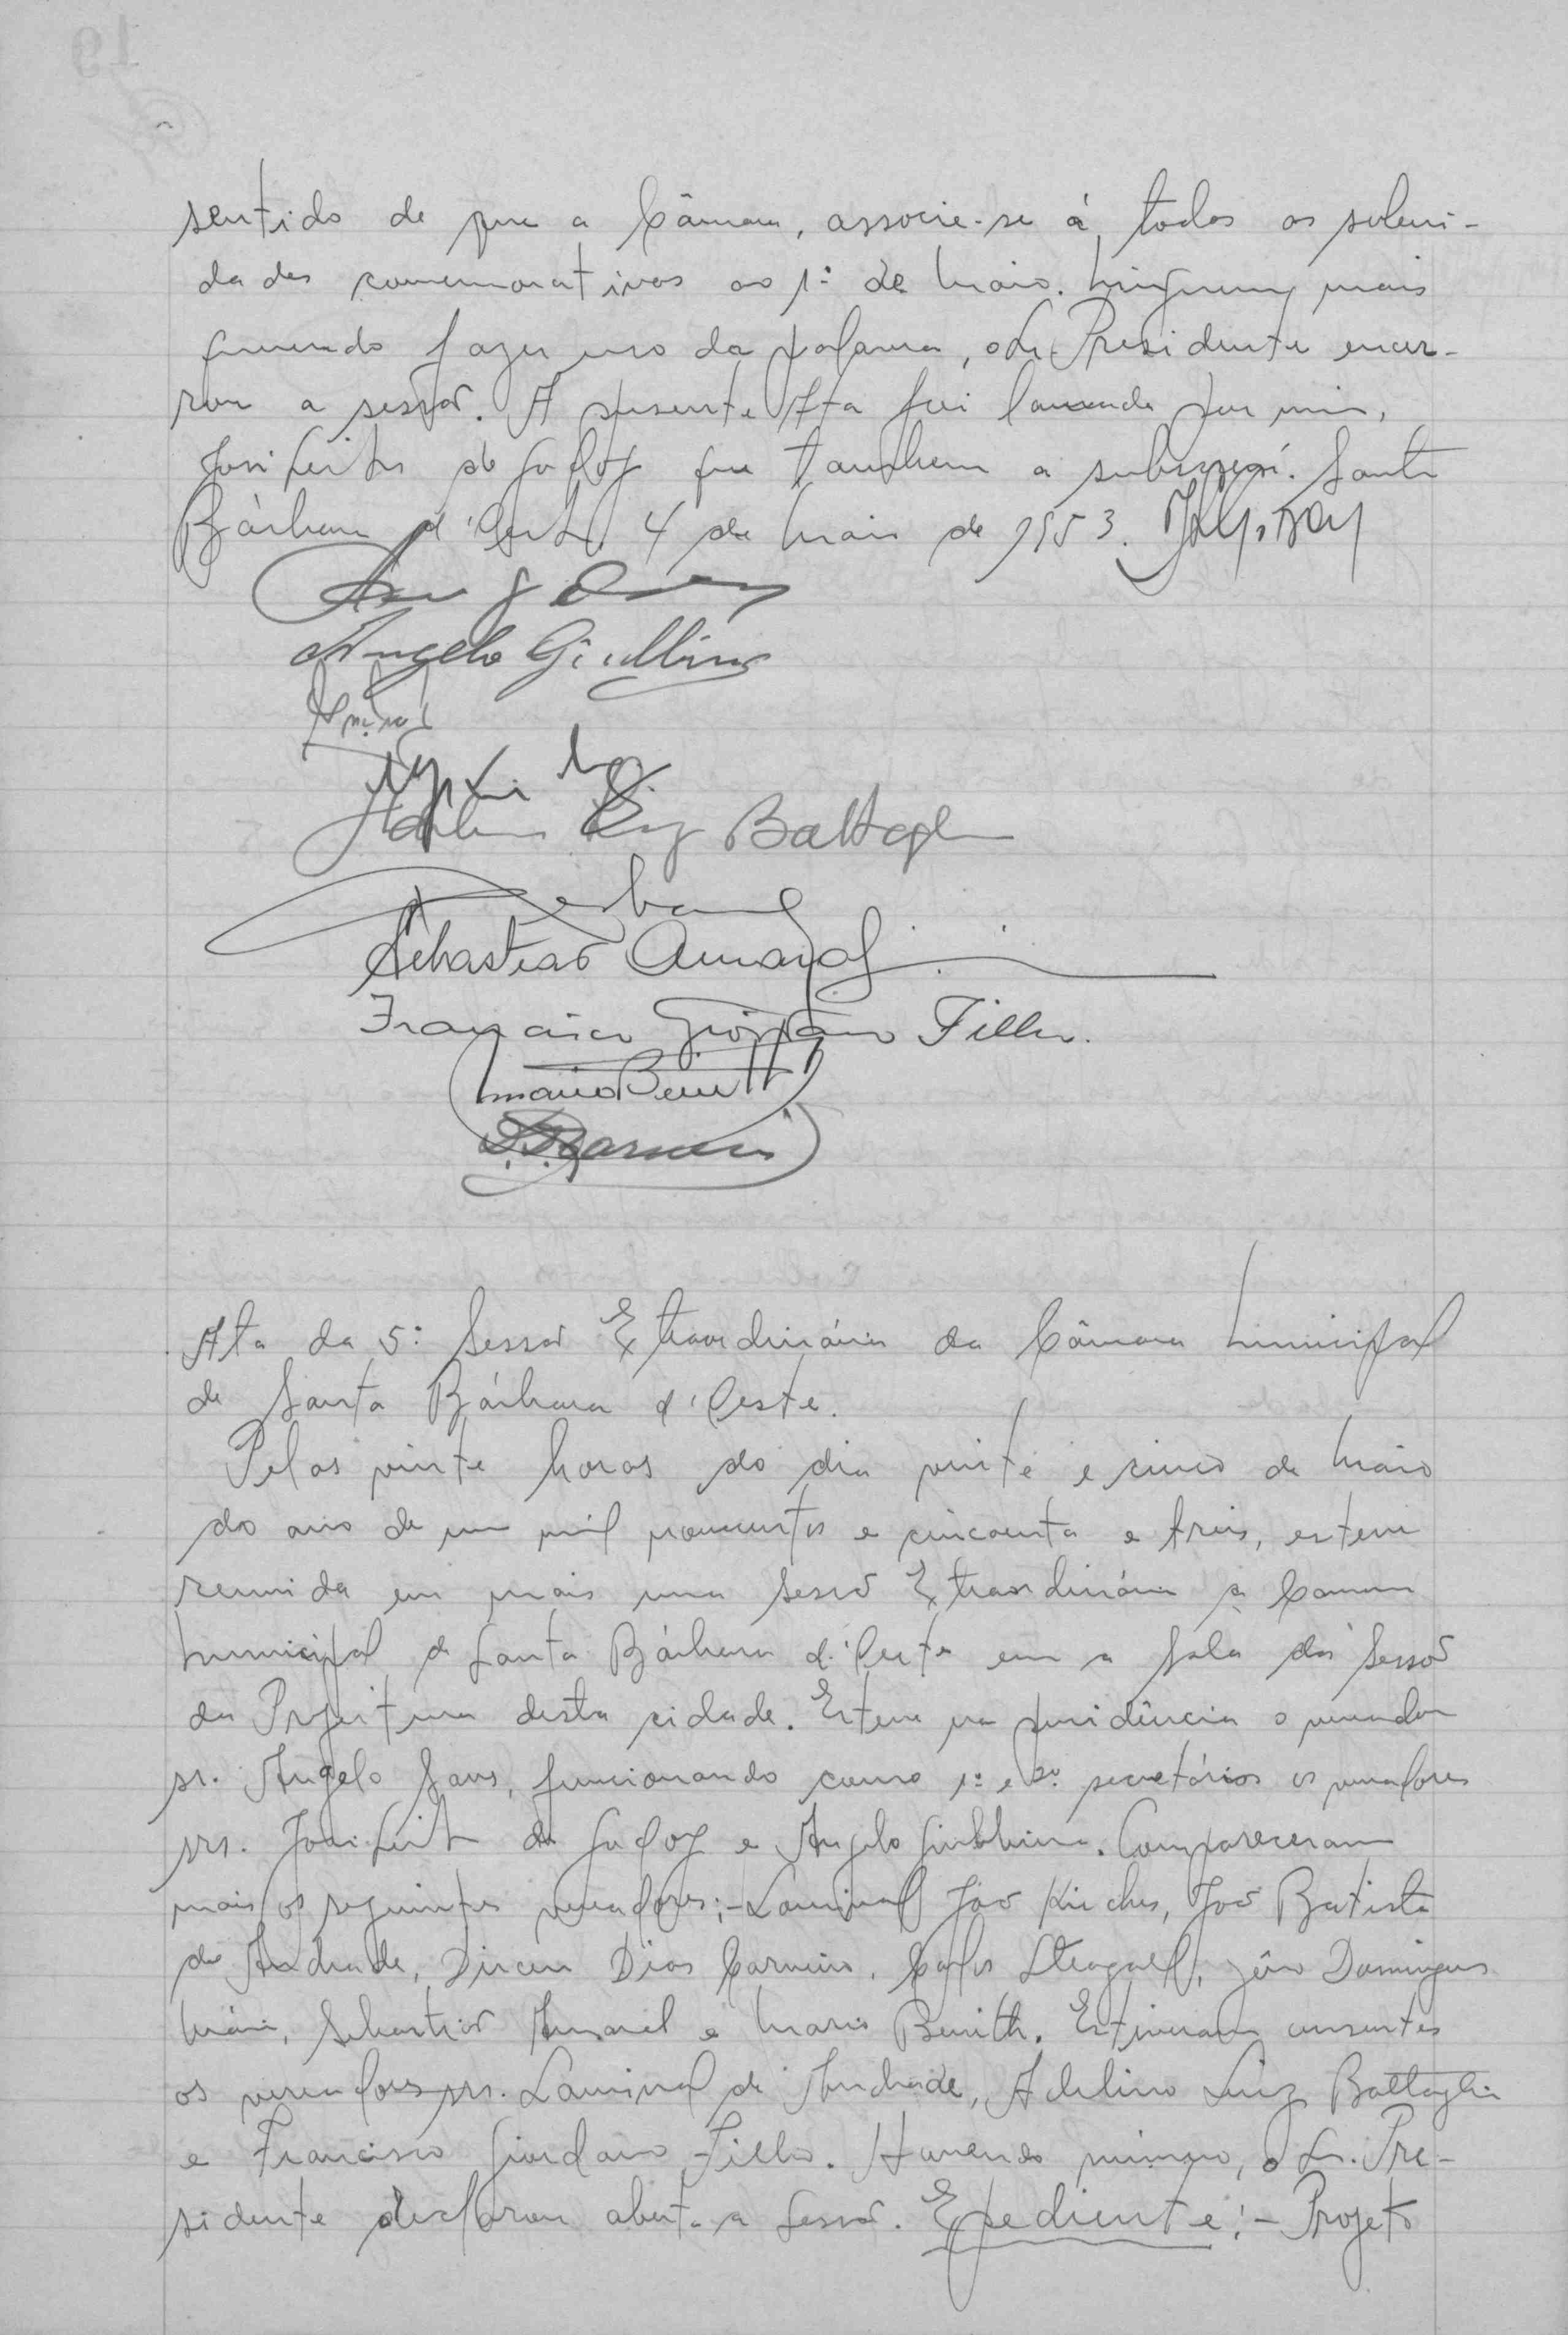 sentido de que a Câmara, associe-se á todas as soleni-
dades comemorativas ao 1º de Maio. Ninguem mais
querendo fazer uso da palavra, o Sr. Presidente encer-
rou a sessão. A presente Ata foi lavrada por mim,
José Leite de Godoy que tambem a subscreví. Santa
Bárbara d'Oeste, 4 de Maio de 1953.
Angelo Giullino
Luiz Battagli
Sebastião Amaral
Francisco Giordano Filho.
Mario Benitti
Ata da 5ª Sessão Extraordinária da Câmara Municipal
de Santa Bárbara d'Oeste.
Pelas vinte horas do dia vinte e cinco de Maio
do ano de um mil novecentos e cincoenta e treis, esteve
reunida em mais uma Sessão Extraordinária a Camara
Municipal de Santa Bárbara d'Oeste em a Sala da Sessão
da Prefeitura desta cidade. Esteve na presidência o vereador
sr. Angelo Sans, funcionando como 1º e 2º secretários os vereadores
srs. José Leite de Godoy e Angelo Giubbina. Compareceram
mais os seguintes vereadores:- Lourival João Kirches, João Batista
de Andrade, Dirceu Dias Carneiro, Carlos Steagall, Jêso Domingues
Maia, Sebastião Amaral e Mario Benitti. Estiveram ausentes
os vereadores srs. Lourival de Andrade, Adelino Luiz Battaglia
e Francisco Giordano Filho. Havendo número, o Sr. Pre-
sidente declarou aberta a Sessão. Expediente:- Projeto